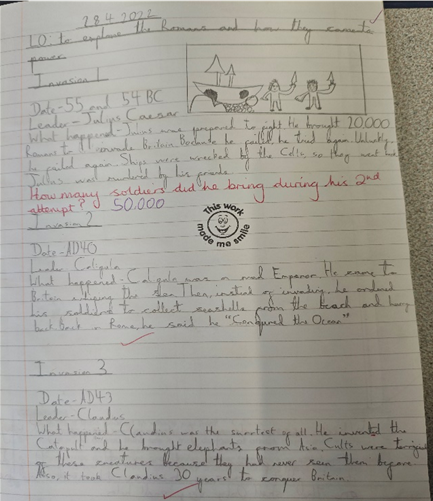 28.4.2022
L.O. to explore the Romans and how they came to
power
Invasion 1
Date-55 and 54 BC
Leader-Julius Caesar
What happened- were prepared to fight. He brought 20,000
Romans to invade Britain he failed, he tried again.
he failed again. Ships were wrecked by the Celts, so they went
Julius was murdered by his friends
How many soldiers did he bring during his 2nd
attempt? 50,000
This work
made me smile
Invasion 2
Date-AD40
Leader Caligula
What happened-Caligula was a mad Emperor. He came to
Britain the sea. Then, instead of invading, he ordered
his soldiers to collect seashells from the beach and
back in Rome, he said he "Conquered the Ocean"
Invasion 3
Date-AD43
Leader-Claudius
What happened-Claudius was the of all. He invented the
Catapult and he brought elephants from were
of these creatures because they had never seen them before
Also, it took Claudius 30 years to conquer Britain.